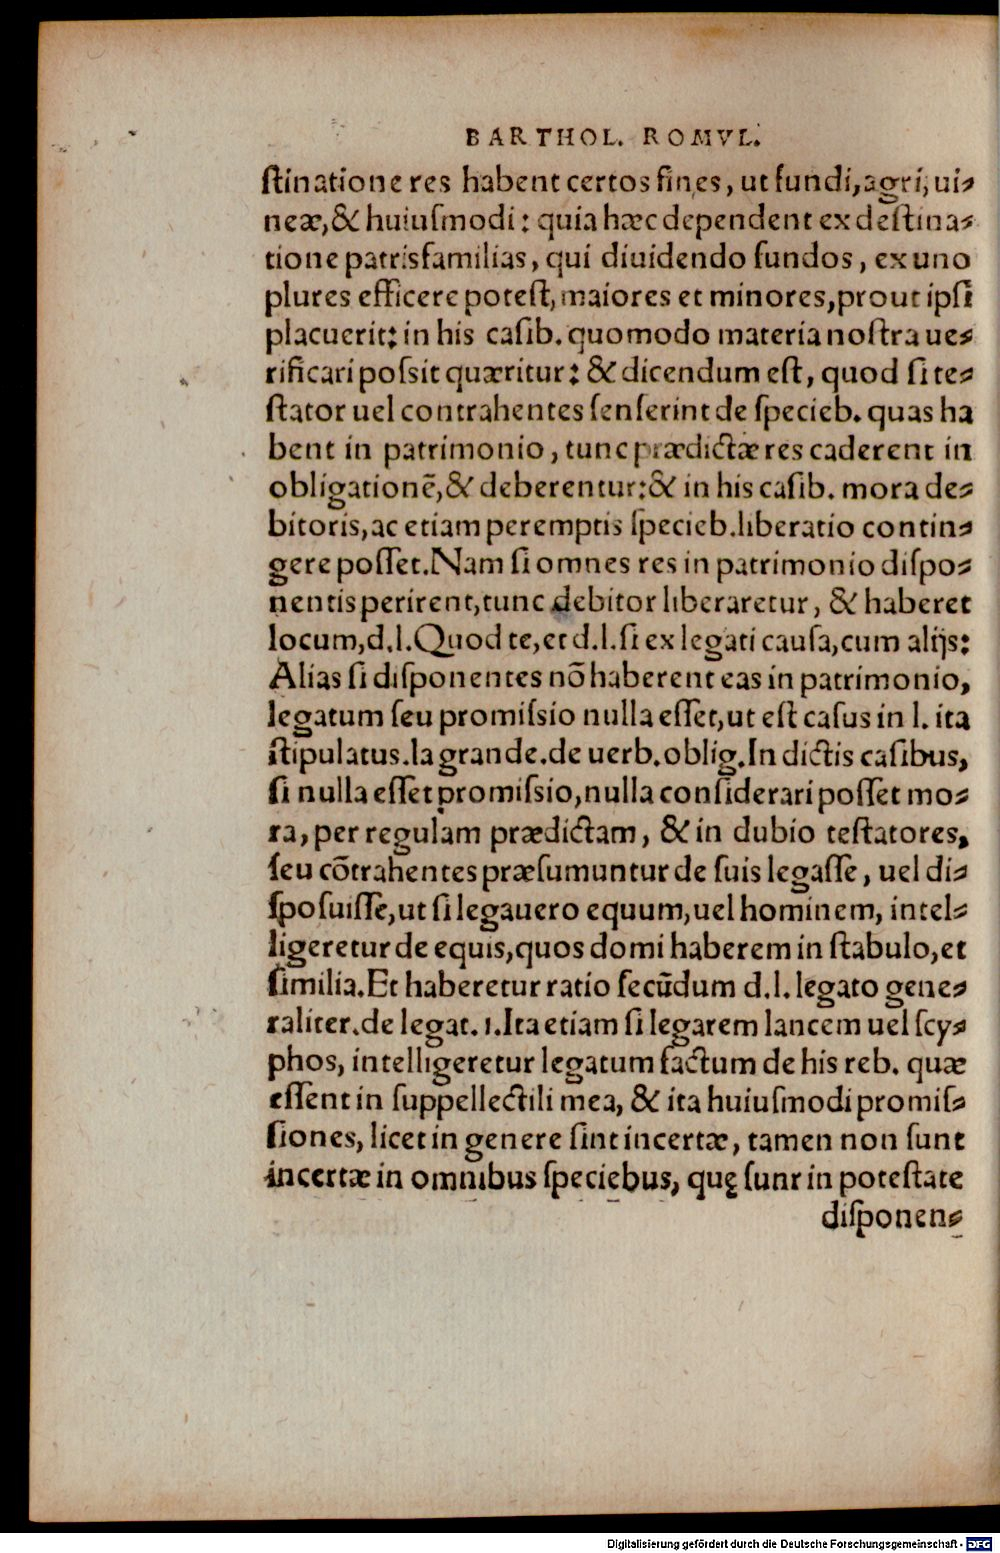 BARTHOL. ROMVL.
ſtinatione res habent certos fines, ut fundi, agri, ui-
neæ, & huiuſmodi: quia hæc dependent ex deſtina-
tione patrisfamilias, qui diuidendo fundos, ex uno
plures efficere poteſt, maiores et minores, prout ipſi
placuerit: in his caſib. quomodo materia noſtra ue-
rificari poſsit quæritur: & dicendum eſt, quod ſi te-
ſtator uel contrahentes ſenſerint de ſpecieb. quas ha
bent in patrimonio, tunc prædictæ res caderent in
obligationē, & deberentur: & in his caſib. mora de-
bitoris, ac etiam peremptis ſpecieb. liberatio contin-
gere poſſet. Nam ſi omnes res in patrimonio diſpo-
nentis perirent, tunc debitor liberaretur, & haberet
locum, d. l. Quod te, et d. l. ſi ex legati cauſa, cum alijs:
Alias ſi diſponentes nō haberent eas in patrimonio,
legatum ſeu promiſsio nulla eſſet, ut eſt caſus in l. ita
ſtipulatus. la grande. de uerb. oblig. In dictis caſibus,
ſi nulla eſſet promiſsio, nulla conſiderari poſſet mo-
ra, per regulam prædictam, & in dubio teſtatores,
ſeu cōtrahentes præſumuntur de ſuis legaſſe, uel di-
ſpoſuiſſe, ut ſi legauero equum, uel hominem, intel-
ligeretur de equis, quos domi haberem in ſtabulo, et
ſimilia. Et haberetur ratio ſecūdum d. l. legato gene-
raliter. de legat. 1. Ita etiam ſi legarem lancem uel ſcy-
phos, intelligeretur legatum factum de his reb. quæ
eſſent in ſuppellectili mea, & ita huiuſmodi promiſ-
ſiones, licet in genere ſint incertæ, tamen non ſunt
incertæ in omnibus ſpeciebus, quę ſunt in poteſtate
diſponen-
Digitalisierung gefördert durch die Deutsche Forschungsgemeinschaft - DFG